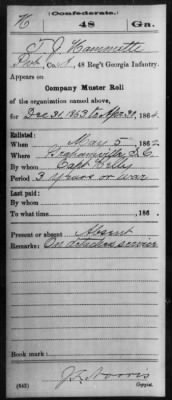 (Confederate.)
H 48 Ga.
T. J. Hammette
Pvt, Co. K, 48 Reg't Georgia Infantry.
Appears on
Company Muster Roll
of the organization named above,
for Dec 31 1863 to Apr 31, 1864.
Enlisted:
When May 5, 1862
Where Grahamville S.C.
By whom Capt Kelly
Period 3 years or war
Last paid:
By whom
To what time , 186 .
Present or absent Absent
Remarks: On detached service
Book mark:
(642) Copyist.